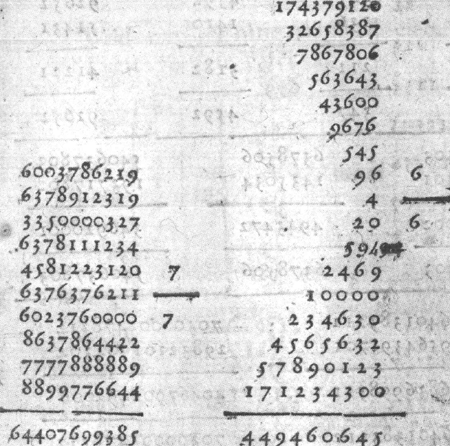 6003786219
6378912319
3350000327
6378111234
4581223120
6376376211
6023760000
8637864422
7777888889
8899776644
64407699385
7
7
174379120
32658387
7867806
563643
43600
9676
545
96
4
20
594
2469
10000
234630
4565632
57890123
171234300
449460645
6
6